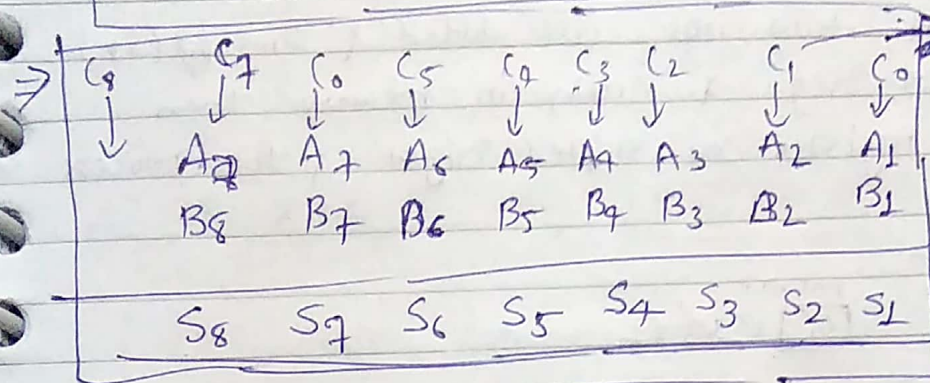 ⇒ C8 C7 C0 C5 C4 C3 C2 C1 C0
↓ ↓ ↓ ↓ ↓ ↓ ↓ ↓ ↓
A8 A7 A6 A5 A4 A3 A2 A1
B8 B7 B6 B5 B4 B3 B2 B1
S8 S7 S6 S5 S4 S3 S2 S1